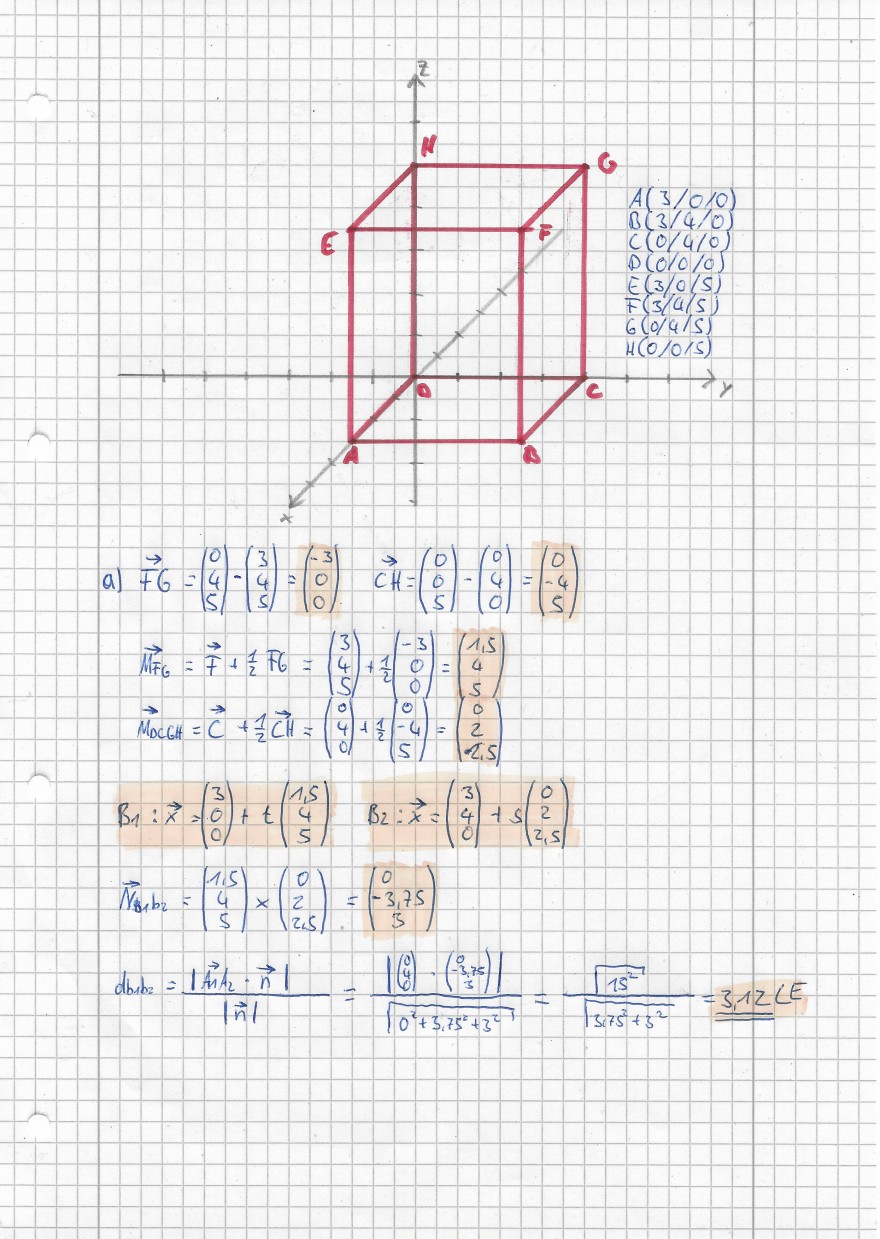 z
H
G
E
F
A(3/0/0)
B(3/4/0)
C(0/4/0)
D(0/0/0)
E(3/0/5)
F(3/4/5)
G(0/4/5)
H(0/0/5)
D
C
y
A
B
x
a) F⃗G = (0 4 5) - (3 4 5) = (-3 0 0) C⃗H = (0 0 5) - (0 4 0) = (0 -4 5)
M⃗FG = F⃗ + 1/2 FG = (3 4 5) + 1/2 (-3 0 0) = (1,5 4 5)
M⃗DCGH = C⃗ + 1/2 C⃗H = (0 4 0) + 1/2 (0 -4 5) = (0 2 2,5)
B1 : x⃗ = (3 0 0) + t (1,5 4 5) B2 : x⃗ = (3 4 0) + s (0 2 2,5)
N⃗b1b2 = (1,5 4 5) × (0 2 2,5) = (0 -3,75 3)
db1b2 = |A1A2⃗ · n⃗| / |n⃗| = |(0 4 0) · (0 -3,75 3)| / √(0² + 3,75² + 3²) = √(15²) / √(3,75² + 3²) = 3,12 LE